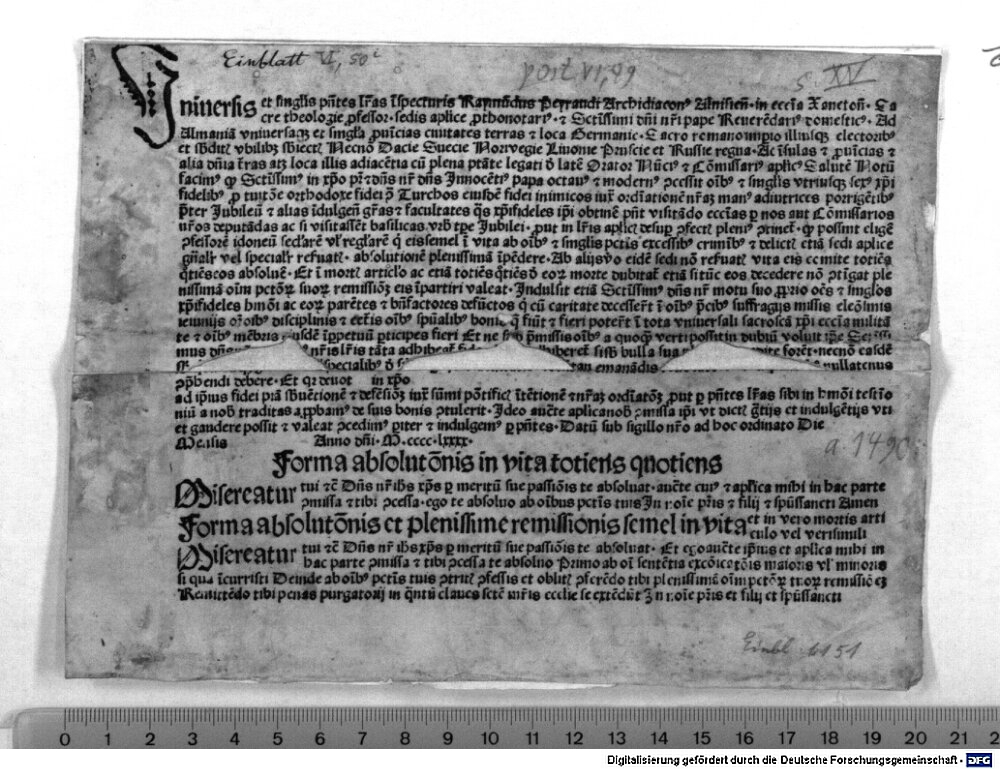 Einblatt VI, 50
S. XV
Vniuersis et singl'is pñtes lr̃as ĩspecturis Raymũdus Peyraudi Archidiaconꝰ Alnisieñ · in ecc̃ia Xanctoñ · Sa
cre theologie ꝓfessor · sedis aplice ꝓthonotariꝰ · ⁊ Sctissimi dñi nr̃i pape Referẽdariꝰ domesticꝰ · Ad
Almaniã vniuersaꝫ et singl'a ꝓuĩcias ciuitates terras ⁊ loca Germanie · Sacro romano impio illiusqꝫ electoribꝰ
et sb̃ditꝭ vbilibꝫ sb̃iectꝭ Necnõ Dacie Suecie Noruegie Liuonie Pruscie et Russie regna · Ac ĩsulas ⁊ ꝓuĩcias ⁊
alia dñia t̃ras atꝫ loca illis adiacẽtia cũ plena ptãte legati d' late᷑ Orator Nũciꝰ ⁊ Cõmissariꝰ aplicꝰ Salute᷑ Notũ
facimꝰ ꝙ Sctissimꝰ in xp̃o pr̃ ⁊ dñs nr̃ dñs Innocẽtiꝰ papa octauꝰ ⁊ modernꝰ ꝯcessit oĩbꝰ ⁊ singlis vtriusqꝫ sexꝰ xp̃i
fidelibꝰ ꝓ tuitõe orthodoxe fidei ꝯ Turchos eiusdẽ fidei inimicos iux̃ ordĩationẽ nr̃aꝫ manꝰ adiutrices porrigẽtibꝰ
p̃ter Jubileũ ⁊ alias ĩdulgen̄ gr̃as ⁊ facultates q̃s xp̃ifideles ip̃i obtine᷑ pñt visitãdo ecc̃ias ꝑ nos aut Cõmissarios
nr̃os deputãdas ac si visitassẽt basilicas vrb̃ tp̃e Jubilei · ꝓut in lr̃is aplicꝭ desuꝑ ꝯfectꝭ pleniꝰ ꝯtinet̃ · ꝙ possint elige᷑
ꝯfessore᷑ idoneũ sclare᷑ vl' regulare᷑ q' eis semel ĩ vita ab oĩbꝰ ⁊ singlis pctis excessibꝰ crimĩbꝰ ⁊ delictꝭ etiã sedi aplice
gñalr̃ vel specialr̃ reseruatꝭ · absolutione᷑ plenissimã ĩpẽdere · Ab alijs vo eidẽ sedi nõ reseruatꝭ vita eis comite totiẽs
q̃tiẽs cos absolue᷑ · Et ĩ mortꝭ articl'o ac etiã totiẽs q̃tiẽs d' eoꝝ morte dubitat̃ etiã si tũc eos decedere nõ ꝯtĩgat ple
nissimã oĩm pctoꝝ suoꝝ remissiõꝫ eis ĩpartiri valeat · Indulsit etiã Sctissimꝰ dñs nr̃ motu suo ꝓprio oẽs ⁊ singlos
xp̃ifideles hmõi ac eoꝝ parẽtes ⁊ bñfactores defũctos q̃ cũ caritate decesserũt ĩ oĩbꝰ p̃cibꝰ suffragijs missis eleõinis
ieiunijs orõibꝰ disciplinis ⁊ cet̃is oĩbꝰ sp̃ualibꝰ bonis q̃ fiũt ⁊ fieri poterũt ĩ tota vniuersali sacrosctã xp̃i ecc̃ia militã
te ⁊ oĩbꝰ mẽbris eiusdẽ ĩppetuũ pticipes fieri Et ne sup p̃missis oĩbꝰ a quoqꝫ verti possit in dubiũ voluit ip̃e Sctissi
mus dñs nr̃is lr̃is tãta adhibeat̃ adhiberet̃ si sub bulla sua foret̃ · necnõ easdẽ
specialibꝰ emanãdis nullatenus
ꝯp̃hendi debere · Et qꝛ deuotꝭ in xp̃o
ad ip̃ius fidei piã sb̃uẽtionẽ ⁊ defẽsiõꝫ iux̃ sũmi põtificꝭ ĩtẽtionẽ ⁊ nr̃aꝫ ordiatõꝫ ꝓut ꝑ pñtes lr̃as sibi in hmõi testĩo
niũ a nob̃ traditas aꝓbamꝰ de suis bonis ꝯtulerit · Ideo aucte᷑ aplica nob̃ ꝯmissa ip̃i vt dictꝭ gr̃ijs et indulgẽtijs vti
et gaudere possit ⁊ valeat ꝯcedimꝰ ꝑiter ⁊ indulgemꝰ ꝑ pñtes · Datũ sub sigillo nr̃o ad hoc ordinato Die
Mensis Anno dñi · M · cccc · lxxxx ·
a. 1490
Forma absolutõnis in vita totiens quotiens
Misereatur tui ⁊c̃ Dñs nr̃ ihs xp̃s ꝑ meritũ sue passiõis te absoluat · aucte᷑ cuiꝰ ⁊ aplica mihi in hac parte
ꝯmissa ⁊ tibi ꝯcessa · ego te absoluo ab oĩbus pctis tuis In noĩe pr̃is ⁊ filij ⁊ sp̃ussancti Amen
Forma absolutõnis et plenissime remissionis semel in vita et in vero mortis arti
culo vel verisimili
Misereatur tui ⁊c̃ Dñs nr̃ ihs xp̃s ꝑ meritũ sue passiõis te absoluat · Et ego aucte᷑ ip̃ius et aplica mihi in
hac parte ꝯmissa ⁊ tibi ꝯcessa te absoluo Primo ab oĩ sentẽtia excõicatõis maioris vl' minoris
si quã ĩcurristi Deinde ab oĩbꝰ pctis tuis ꝯtritꝭ ꝯfessis et oblitꝭ ꝯferẽdo tibi plenissimã oĩm pctoꝝ tuoꝝ remissiõeꝫ
Remittẽdo tibi penas purgatorij in q̃ntũ claues scte᷑ mr̃is ecclie se extẽdũt In noĩe pr̃is et filij et sp̃ussancti
Einbl. 1151
0 1 2 3 4 5 6 7 8 9 10 11 12 13 14 15 16 17 18 19 20 21 2
Digitalisierung gefördert durch die Deutsche Forschungsgemeinschaft - DFG